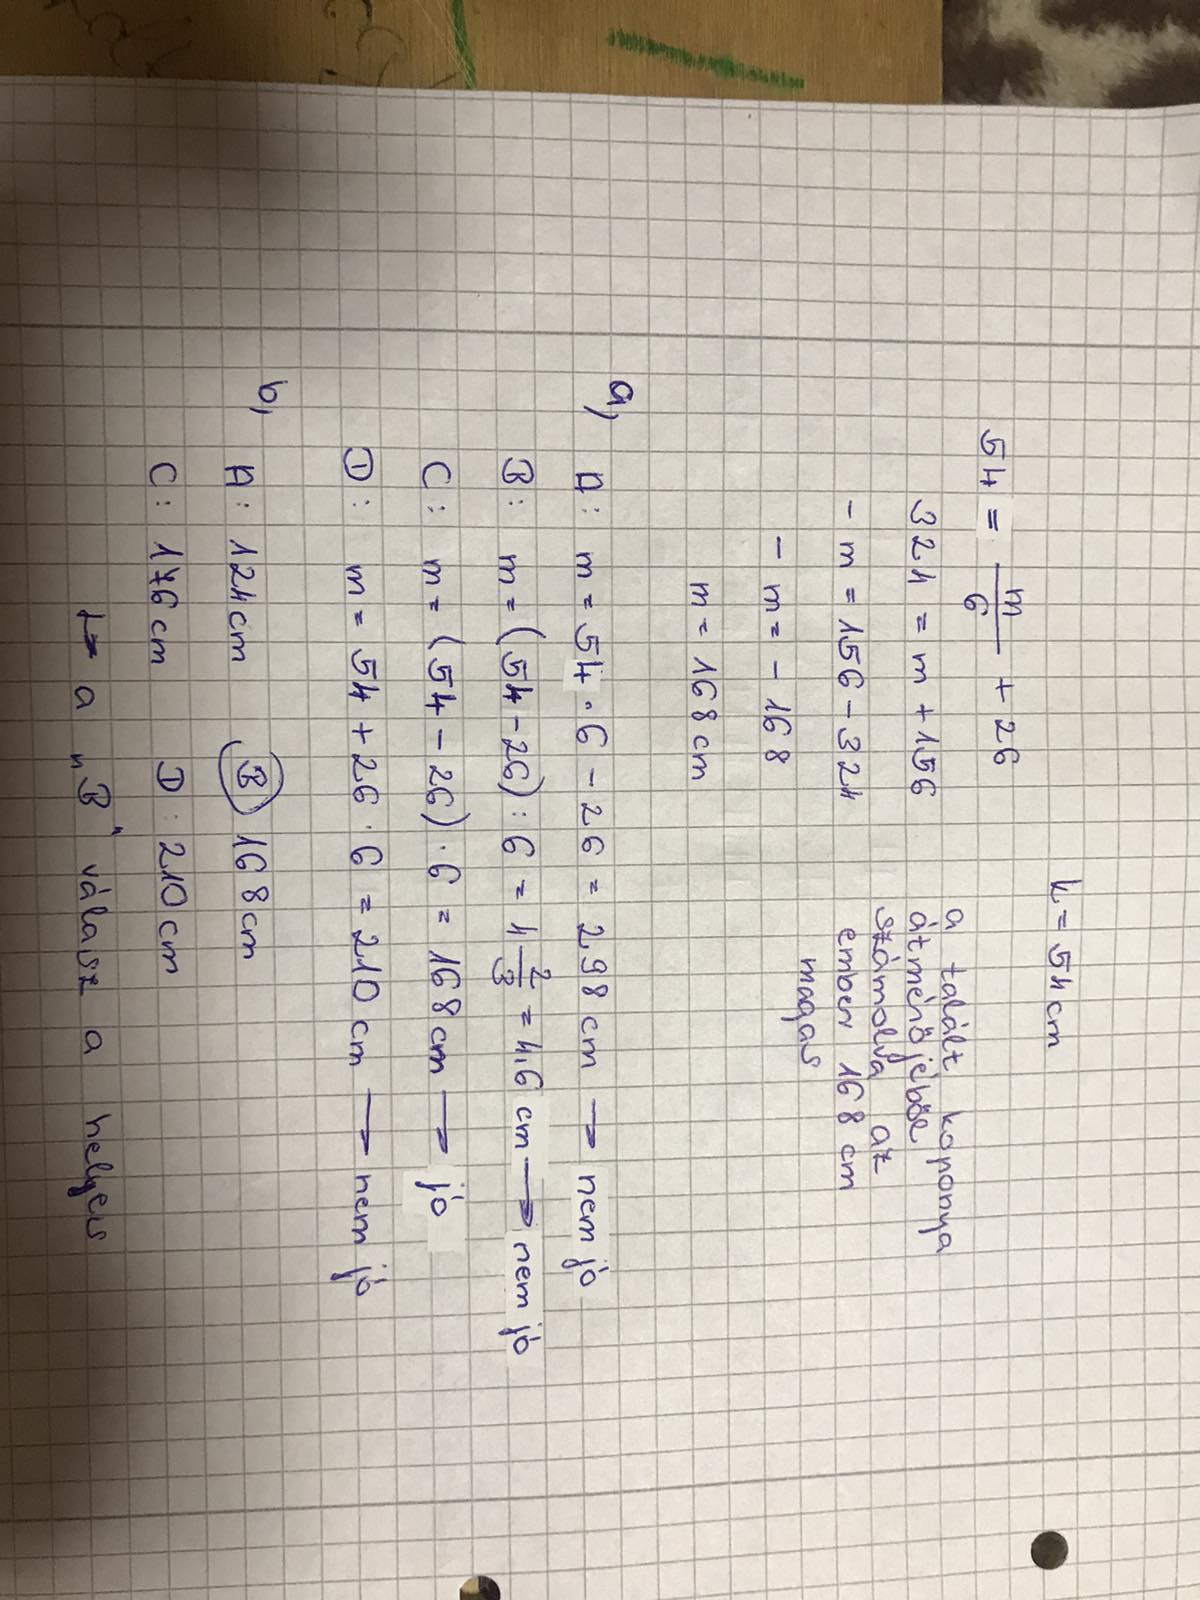 k = 54 cm
54 = m/6 + 26
324 = m + 156
- m = 156 - 324
- m = - 168
m = 168 cm
a talált koponya
átmérőjéből
számolva az
ember 168 cm
magas
a, A: m = 54 · 6 - 26 = 298 cm → nem jó
B: m = (54 - 26) : 6 = 4 2/3 = 4,6 cm → nem jó
C: m = (54 - 26) · 6 = 168 cm → jó
D: m = 54 + 26 · 6 = 210 cm → nem jó
b, A: 124 cm B 168 cm
C: 176 cm D: 210 cm
↳ a "B" válasz a helyes